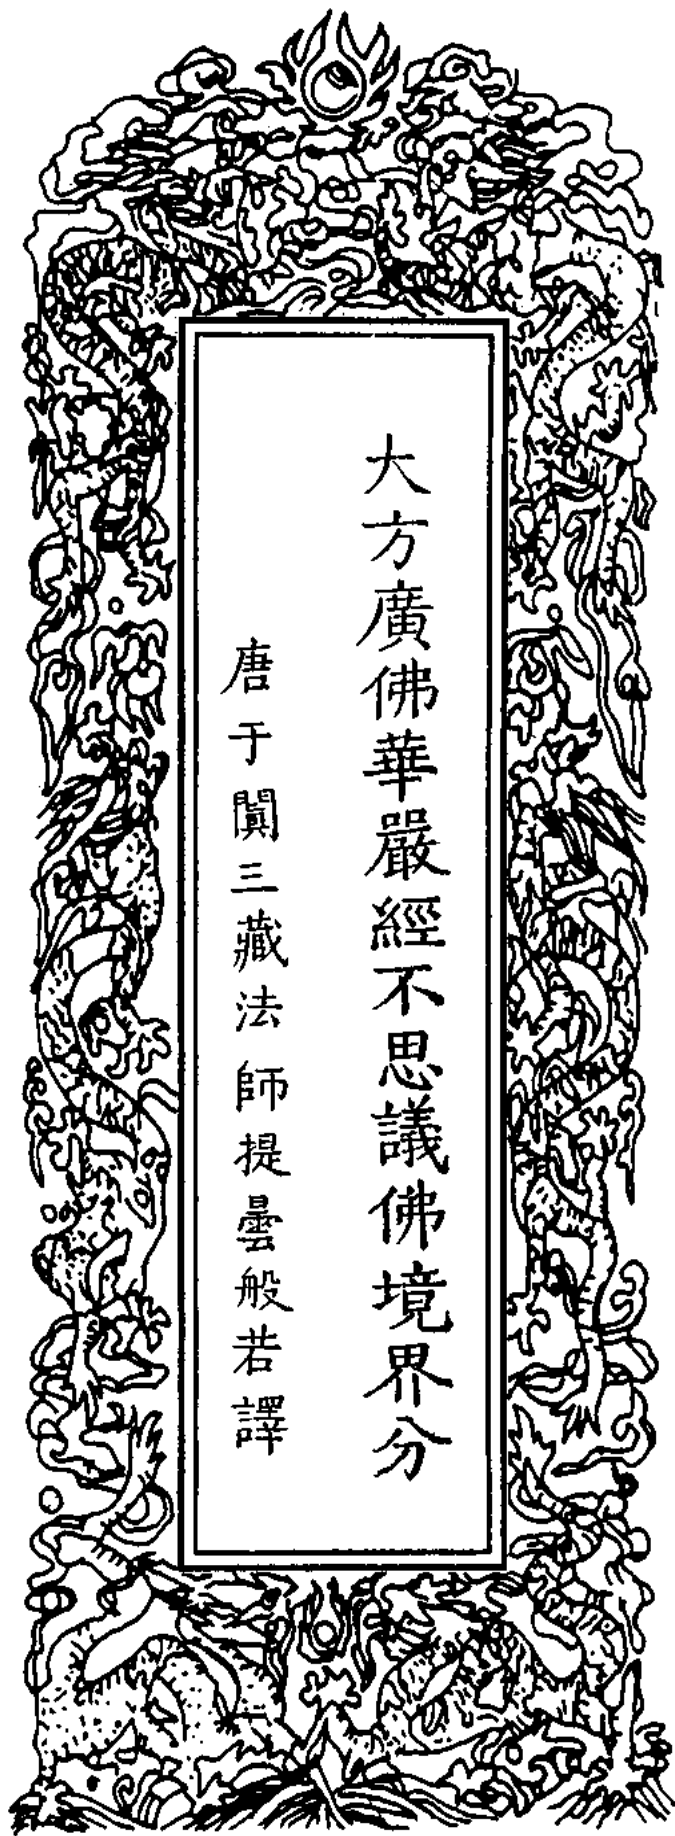 大方廣佛華嚴經不思議佛境界分
唐于闐三藏法師提曇般若譯